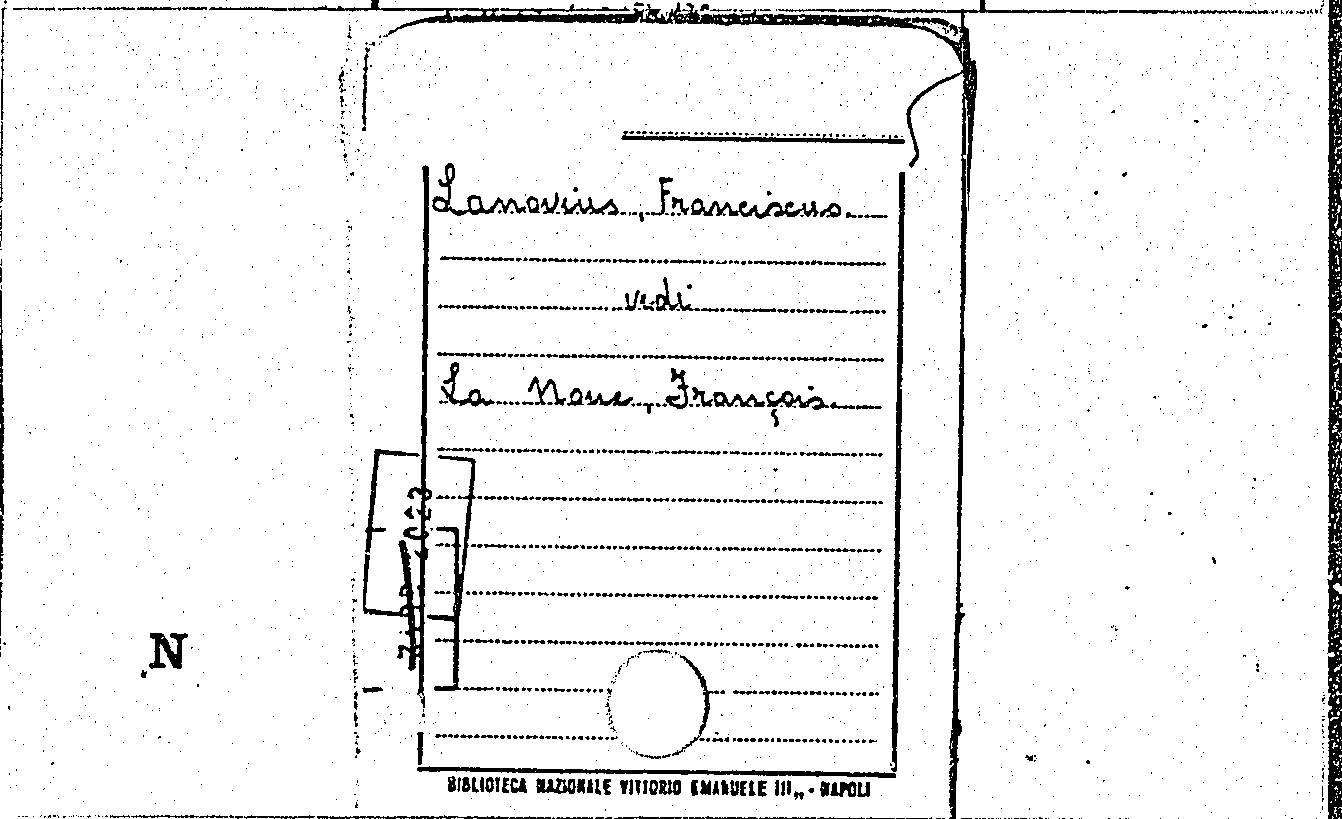 Lanovius, Franciscus.
vedi
La Noue, François.
N
BIBLIOTECA NAZIONALE VITTORIO EMANUELE III„ - NAPOLI